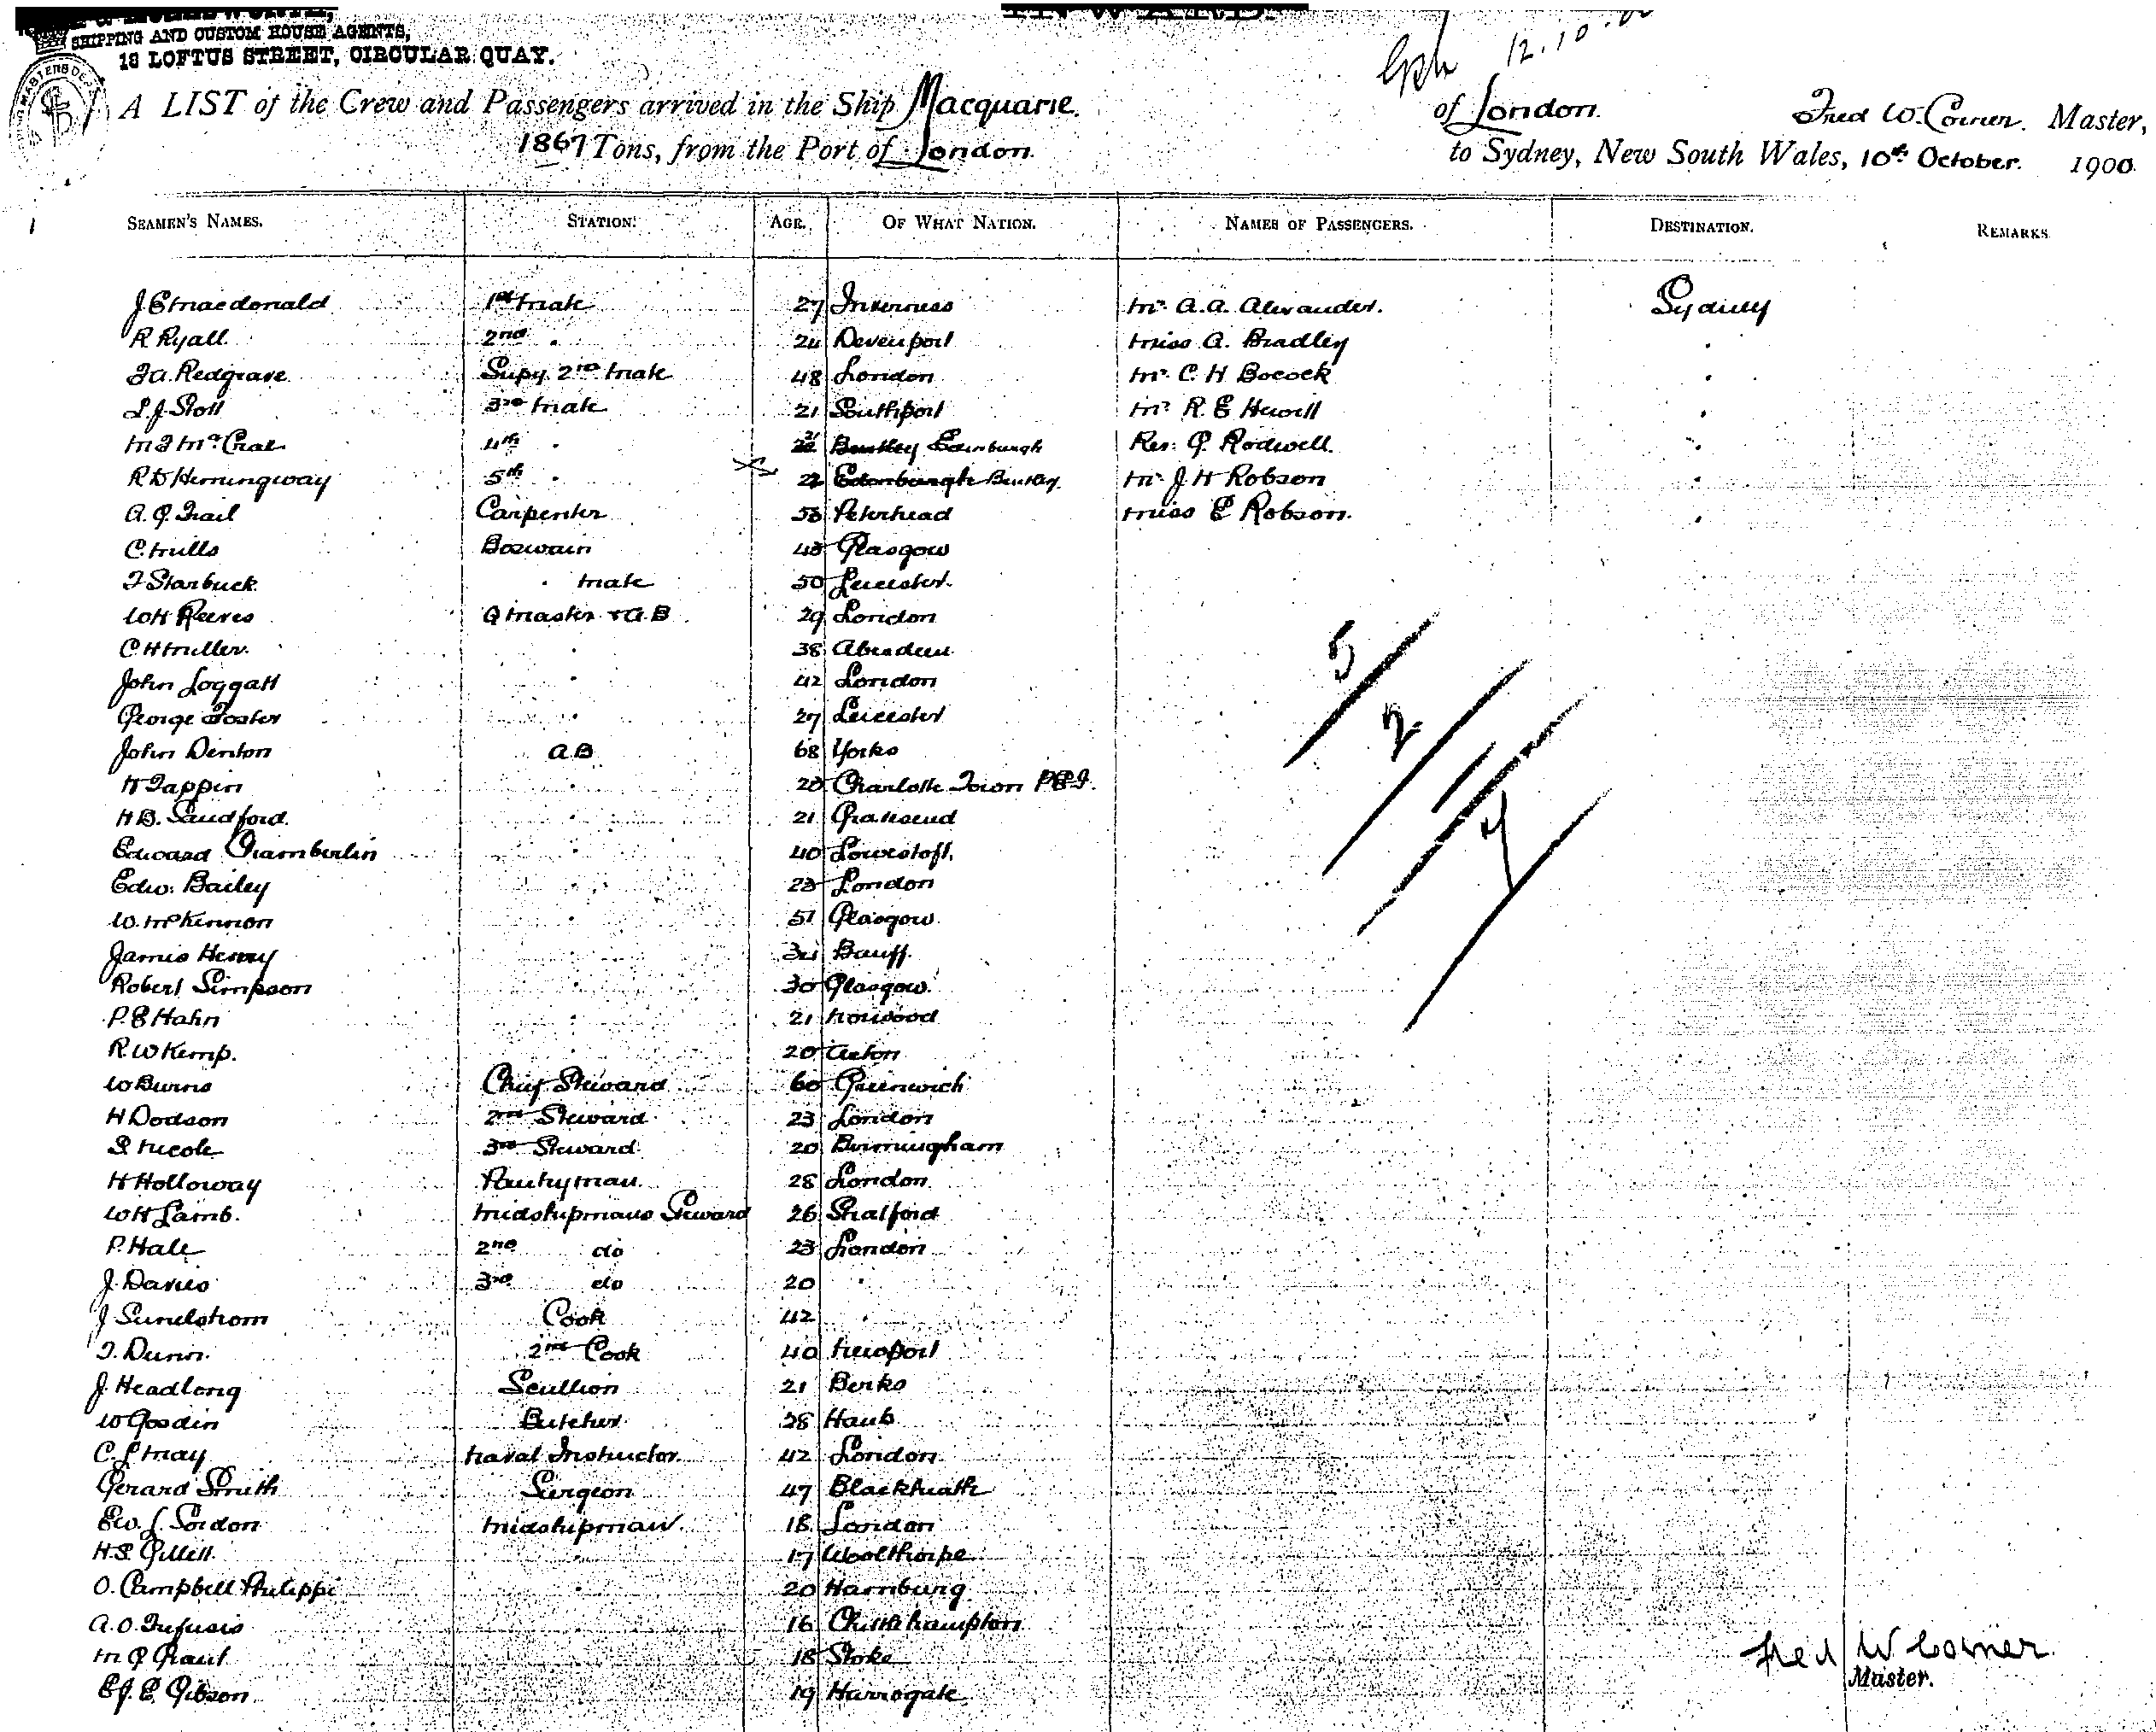 SHIPPING AND CUSTOM HOUSE AGENTS,
18 LOFTUS STREET, CIRCULAR QUAY.
12.10.00
A LIST of the Crew and Passengers arrived in the Ship Macquarie. of London. Fred W. Corner. Master,
1867 Tons, from the Port of London. to Sydney, New South Wales, 10th October. 1900
SEAMEN'S NAMES. STATION. AGE. OF WHAT NATION. NAMES OF PASSENGERS. DESTINATION. REMARKS
J E Macdonald 1st Mate 27 Inverness Mr. A.A. Alexander. Sydney
R Ryall 2nd . 24 Devenport Miss A. Bradley .
F A. Redgrave Supy 2nd Mate 48 London Mr. C. H Bocock .
S. J. Stott 3rd Mate 21 Southport Mr. R. E Hewitt
M J McCrae 4th . 21 Bentley Edinburgh Rev: G. Rodwell. .
R D Hemingway 5th . Edenburgh Bentley. Mr. J. H Robson .
A. G. Trail Carpenter 53 Peterhead Miss E Robson. .
C. Mills Boswain 43 Glasgow
F Starbuck . Mate 50 Leicester.
W H Reeves Q Master & A.B 29 London
C H Muller. . 38 Aberdeen
John Loggatt . 42 London
George Foster . 27 Leicester
John Denton A B 68 Yorks
H Tappin . 20 Charlotte Town P.E.I.
H B. Sandford. . 21 Gravesend
Edward Chamberlin . 40 Lowestoft,
Edw: Bailey . 23 London
W. McKinnon . 51 Glasgow.
James Henry . 34 Banff.
Robert Simpson . 30 Glasgow.
P. E Hahn . 21 Norwood
R. W Kemp. . 20 Acton
W Burns Chief Steward 60 Greenwich
H Dodson 2nd Steward 23 London
S Nicole 3rd Steward 20 Birmingham
H Holloway Pantryman. 28 London
W H Lamb. Midshipmans Steward 26 Stratford
P. Hale 2nd do 23 London
J. Davies 3rd do 20 .
J Sundstrom Cook 42 .
T. Dunn. 2nd Cook 40 Newport
J. Headlong Scullion 21 Berks
W Goodin Butcher 28 Hants
C. L May Naval Instructor. 42 London
Gerard Smith Surgeon 47 Blackheath
Ew. J. Gordon Midshipman. 18 London
H. S. Gillett. . 17 Woolthorpe
O. Campbell Philippi . 20 Hamburg
A. O. Trefusis 16 Chittlehampton
M G Grant 18 Stoke
E J. E. Gibson 19 Harrogate
5
2
Fred W Corner
Master.